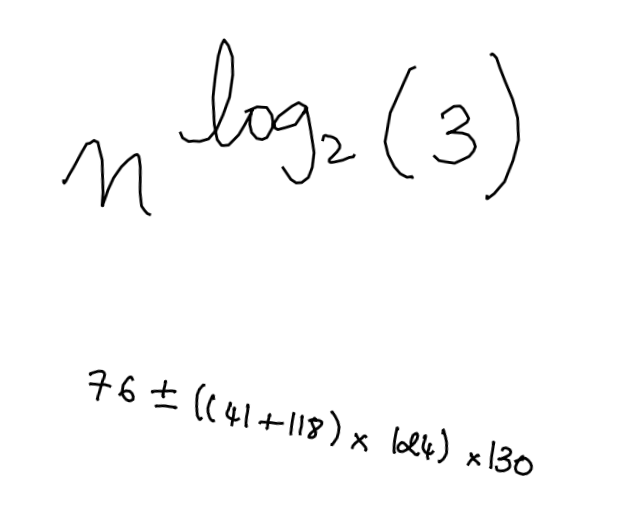 n^{log_2(3)}
76 ± ((41+118) × 124) ×130